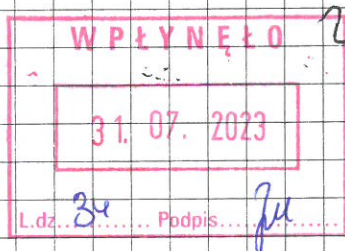 WPŁYNĘŁO
31. 07. 2023
L.dz. 34 ........ Podpis ............